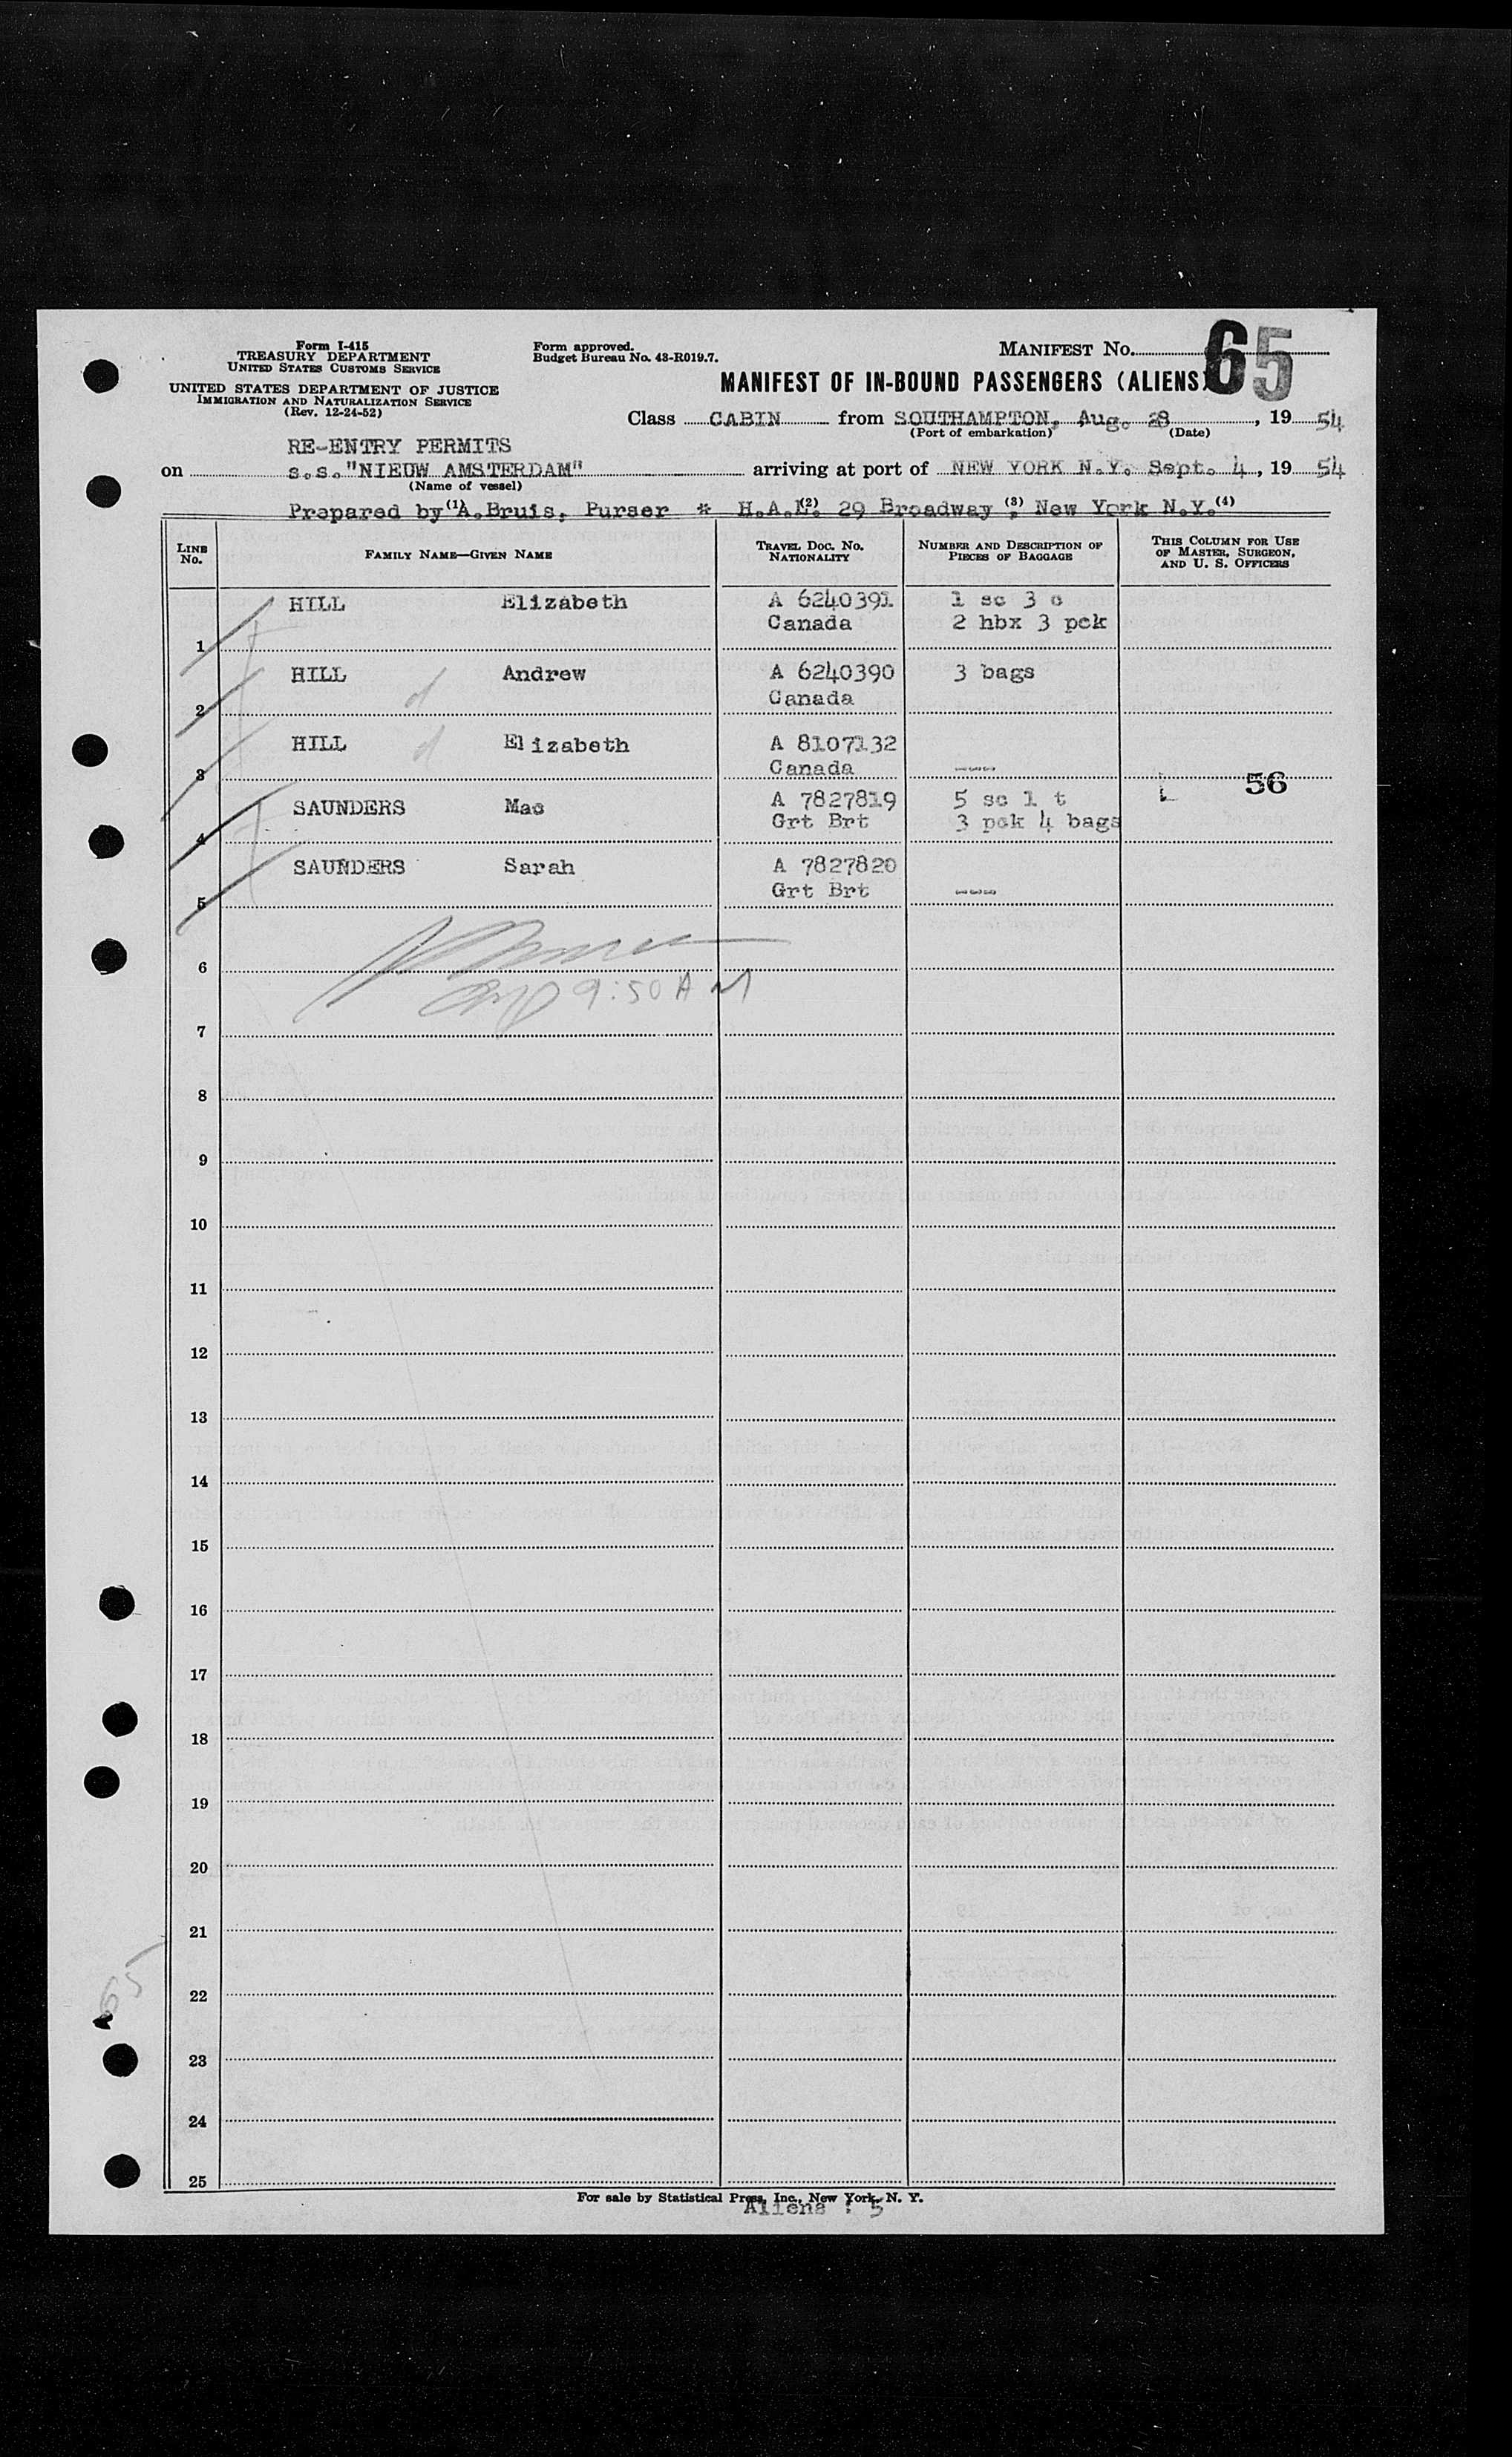 Form I-415
TREASURY DEPARTMENT
UNITED STATES CUSTOMS SERVICE
UNITED STATES DEPARTMENT OF JUSTICE
IMMIGRATION AND NATURALIZATION SERVICE
(Rev. 12-24-52)
Form approved.
Budget Bureau No. 43-R019.7.
MANIFEST NO. 65
MANIFEST OF IN-BOUND PASSENGERS (ALIENS)
Class CABIN from SOUTHAMPTON, Aug. 28, 19 54
(Port of embarkation) (Date)
RE-ENTRY PERMITS
on s.s."NIEUW AMSTERDAM" arriving at port of NEW YORK N.Y. Sept. 4, 19 54
(Name of vessel)
Prepared by (1) A.Bruis, Purser * H.A.L. (2) 29 Broadway (3), New York N.Y. (4)
LINE NO. FAMILY NAME—GIVEN NAME TRAVEL DOC. NO. NATIONALITY NUMBER AND DESCRIPTION OF PIECES OF BAGGAGE THIS COLUMN FOR USE OF MASTER, SURGEON, AND U. S. OFFICERS
HILL Elizabeth A 6240391 1 sc 3 c
1 Canada 2 hbx 3 pck
HILL d Andrew A 6240390 3 bags
2 Canada
HILL d Elizabeth A 8107132
3 Canada ---- 56
SAUNDERS Mac A 7827819 5 sc 1 t
4 Grt Brt 3 pck 4 bags
SAUNDERS Sarah A 7827820
5 Grt Brt ----
6
9:50 AM
7
8
9
10
11
12
13
14
15
16
17
18
19
20
21
65
22
23
24
25
For sale by Statistical Press, Inc., New York, N. Y.
Aliens : 5